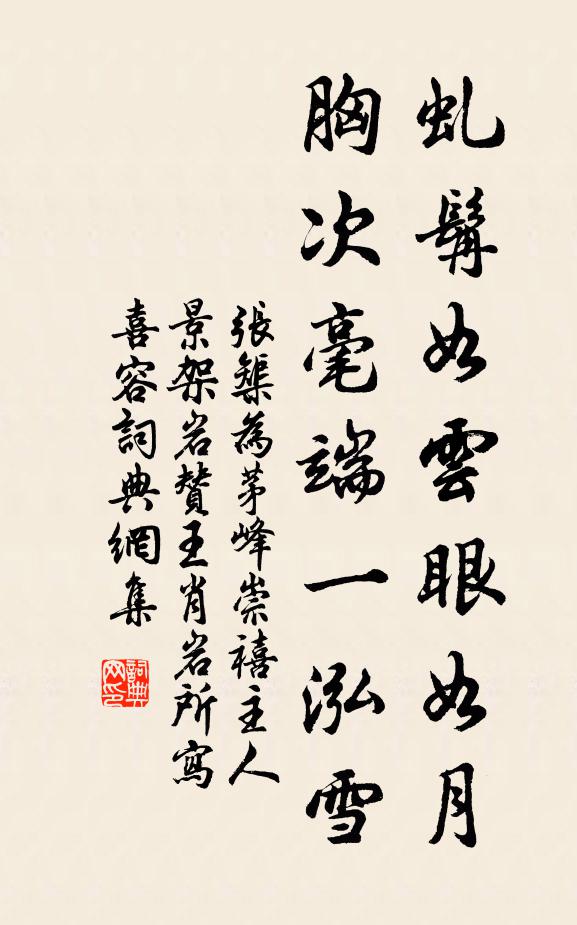 虬髯如雲眼如月
胸次毫端一泓雪
張榘為茅峰崇禧主人
景架岩贊王肖岩所寫
喜容詞典網集
詞典网印